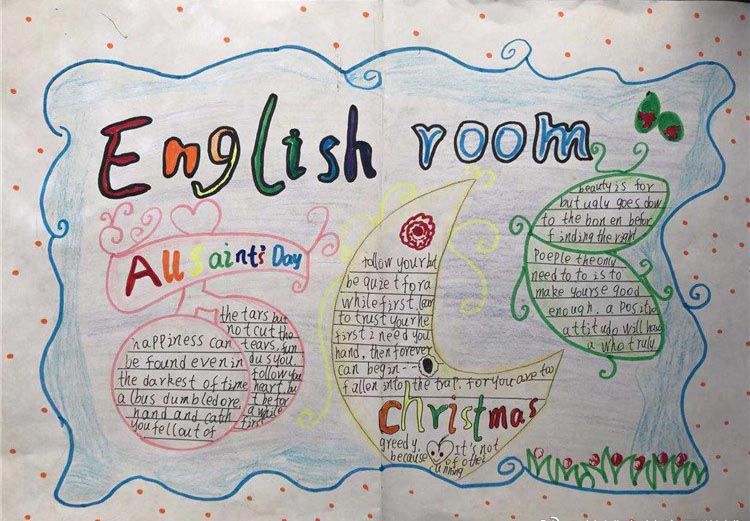 English room
All Saint's Day
happiness can
be found even in
the darkest of time
albus dumbledore
hand and cath
you fell out of
the tars but
not cut the
tears, fun
dus you
follow you
heart, but
t be for
a while
first
follow your but
be quiet for a
while first lear
to trust your he
first i need you
hand, then forever
can begin--
fallen into the trap. for you are too
christmas
greedy, It's not
because of other
cunning
beauty is for
but ugly goes dow
to the bon en befor
finding the right
Poeple the only
need to to is to
make yourse good
enough. a Positiv
attitudo will hav
a who truly